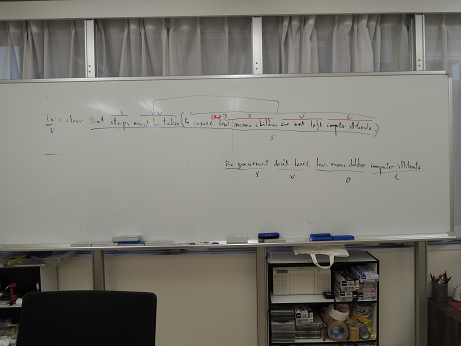 S V
(that) S V C
It's clear that steps must be taken (to ensure low income children are not left computer illiterate)
S S
the government doesn't leave low income children computer illiterate
S V O C